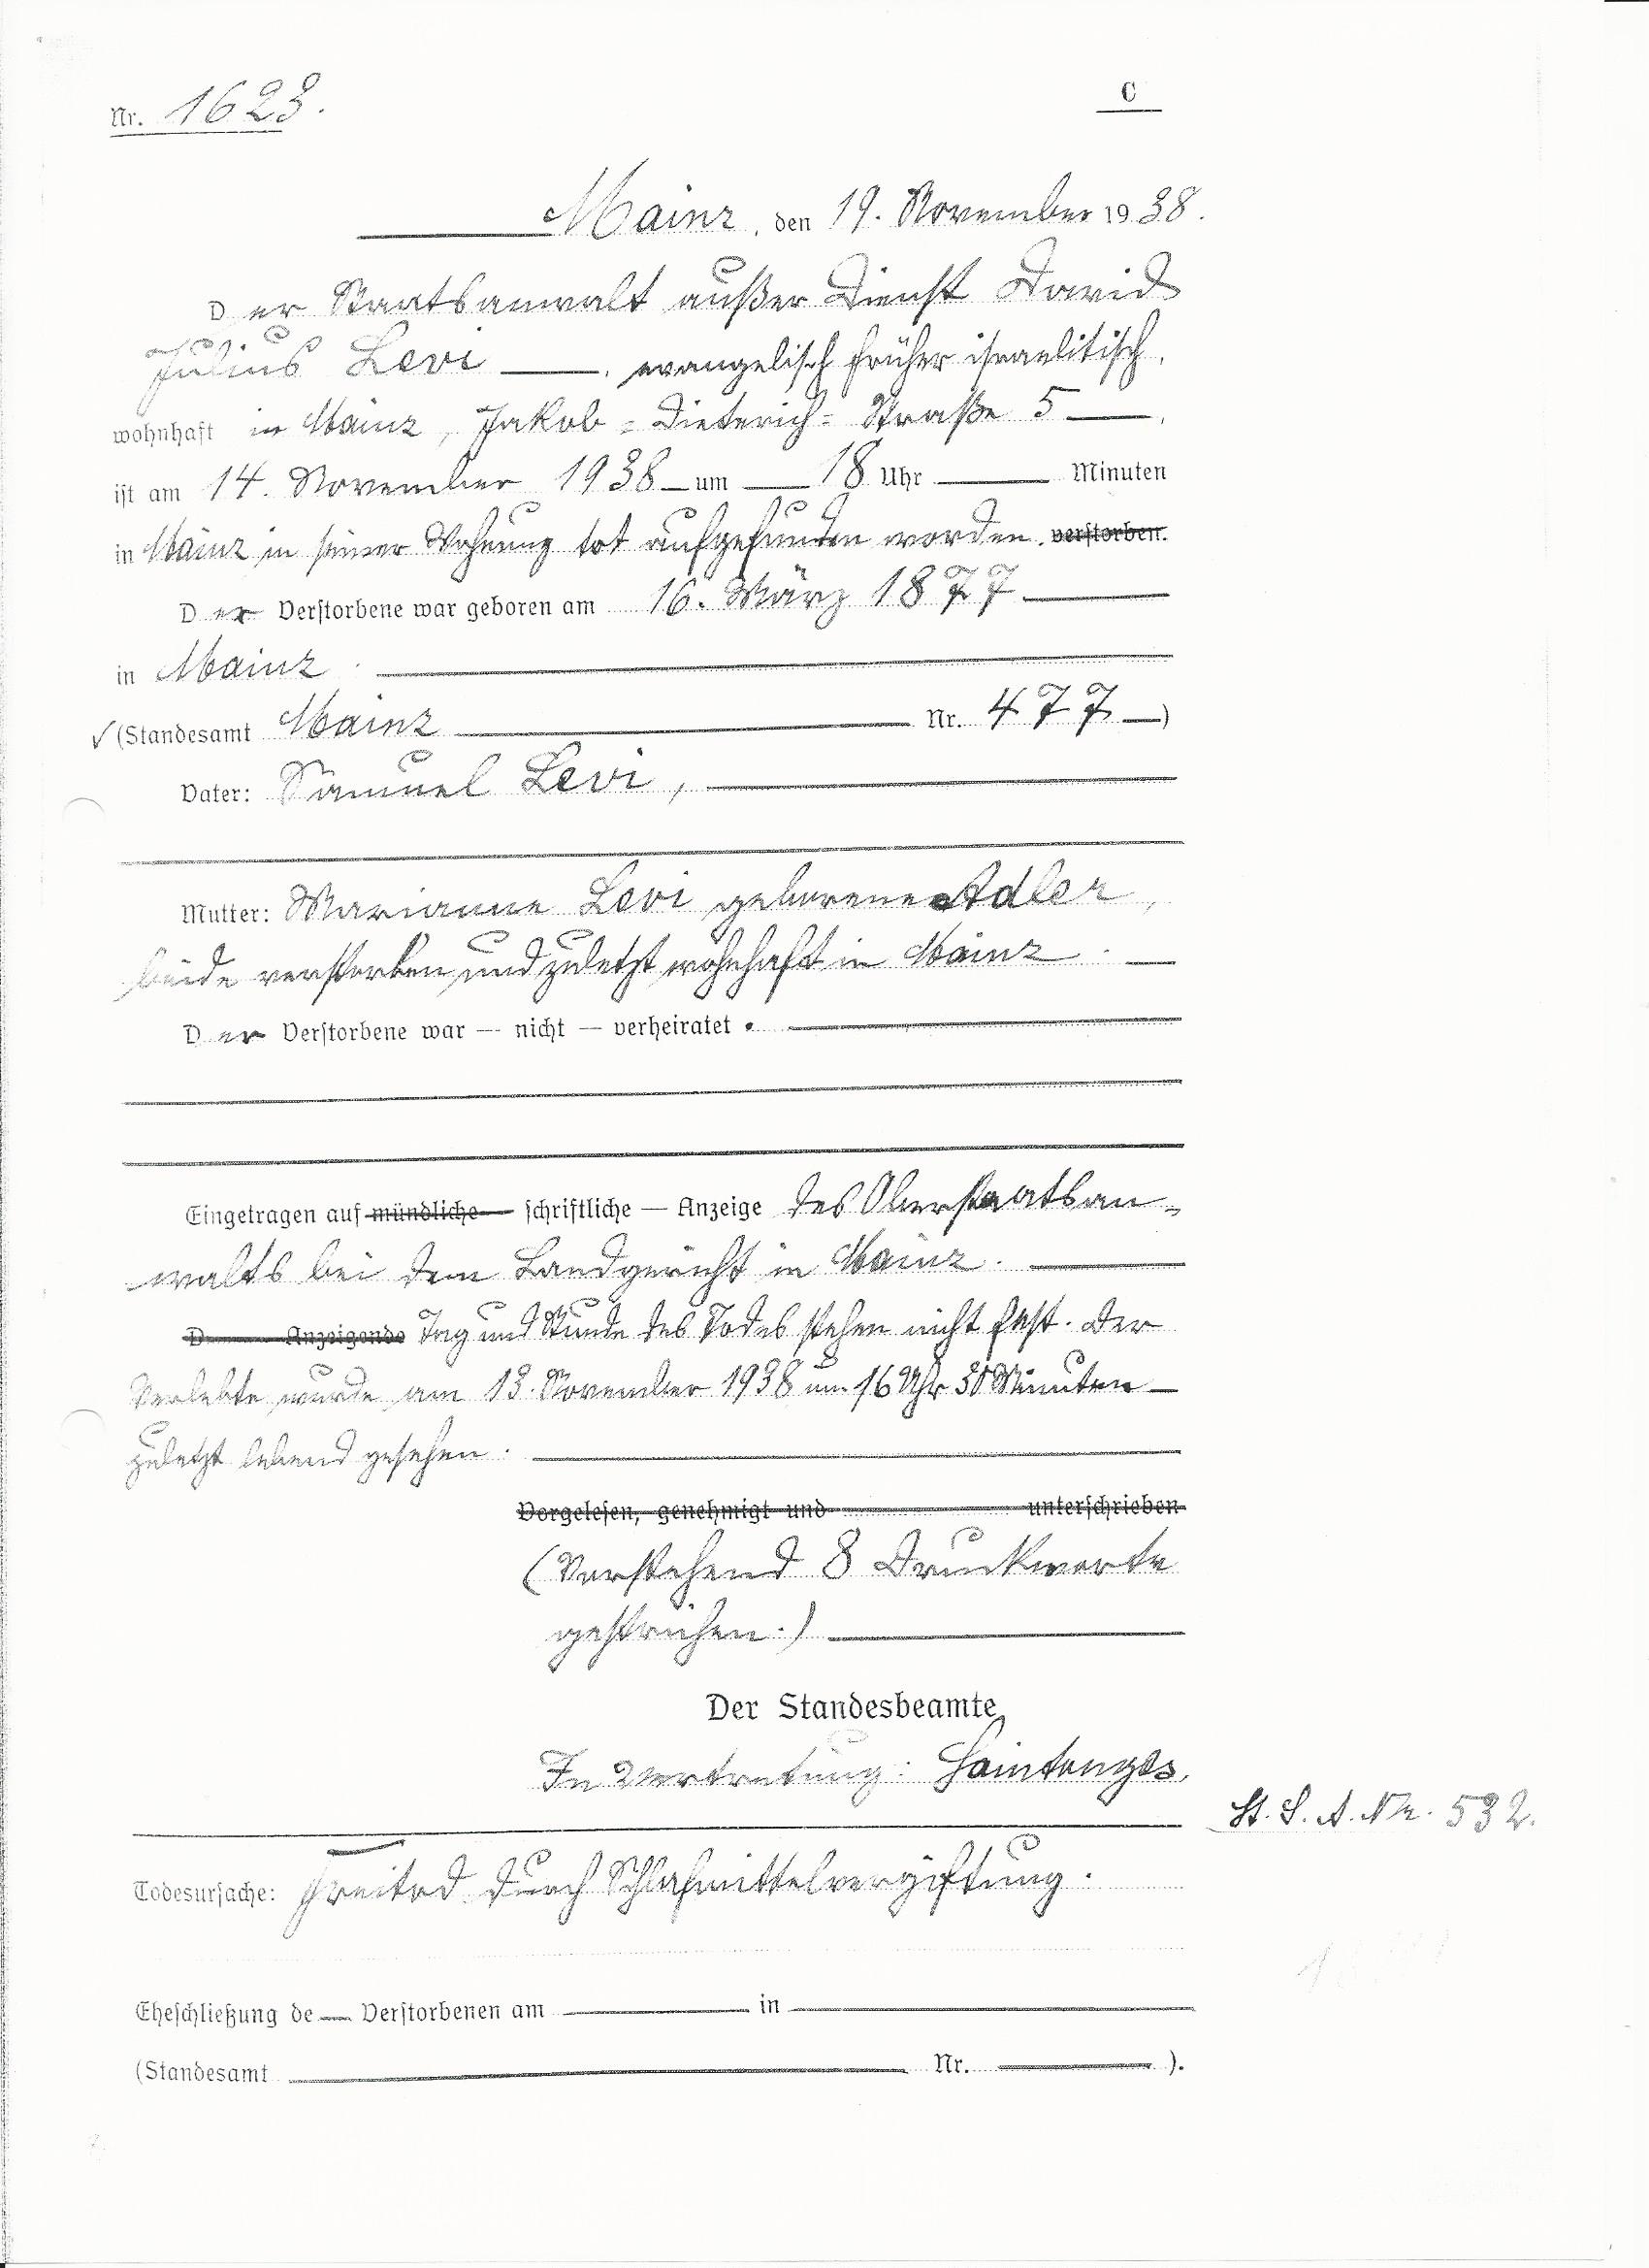 Nr. 1623.
C
Mainz, den 19. November 1938.
Der Staatsanwalt außer Dienst David
Julius Levi —, evangelisch früher israelitisch,
wohnhaft in Mainz, Jakob-Dieterich-Straße 5 —,
ist am 14. November 1938 um — 18 Uhr — Minuten
in Mainz in seiner Wohnung tot aufgefunden worden. verstorben.
Der Verstorbene war geboren am 16. März 1877 —
in Mainz.
(Standesamt Mainz — Nr. 477 —)
Vater: Samuel Levi,
Mutter: Marianne Levi geborene Adler,
beide verstorben und zuletzt wohnhaft in Mainz. —
Der Verstorbene war — nicht — verheiratet.
Eingetragen auf mündliche — schriftliche — Anzeige des Oberstaatsan-
walts bei dem Landgericht in Mainz. —
D Anzeigende Tag und Stunde des Todes stehen nicht fest. Der
Verlebte wurde am 13. November 1938 um 16 Uhr 30 Minuten —
zuletzt lebend gesehen. —
Vorgelesen, genehmigt und unterschrieben
(Vorstehend 8 Druckworte
gestrichen.) —
Der Standesbeamte
In Vertretung:
St. S. A. Nr. 532.
Todesursache: Freitod durch Schlafmittelvergiftung.
Eheschließung de — Verstorbenen am — in —
(Standesamt — Nr. — ).